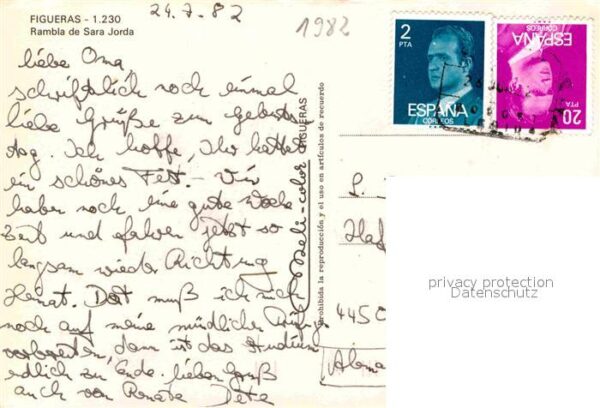 FIGUERAS - 1.230
Rambla de Sara Jorda
24.7.82
1982
liebe Oma,
schriftlich noch einmal
liebe Grüße zum Geburts-
tag. Ich hoffe, Ihr hattet
ein schönes Fest. - Wir
haben noch eine gute Woche
Zeit und fahren jetzt so
langsam wieder Richtung
Heimat. Dort muß ich mich
noch auf meine mündliche Prüfg.
vorbereiten, dann ist das Studium
endlich zu Ende. lieben Gruß
auch von Renate Pete
FIGUERAS
Prohibida la reproducción y el uso en artículos de recuerdo
2
PTA
ESPAÑA
CORREOS
20
PTAS
ESPAÑA
CORREOS
L.
445
Alema
privacy protection
Datenschutz